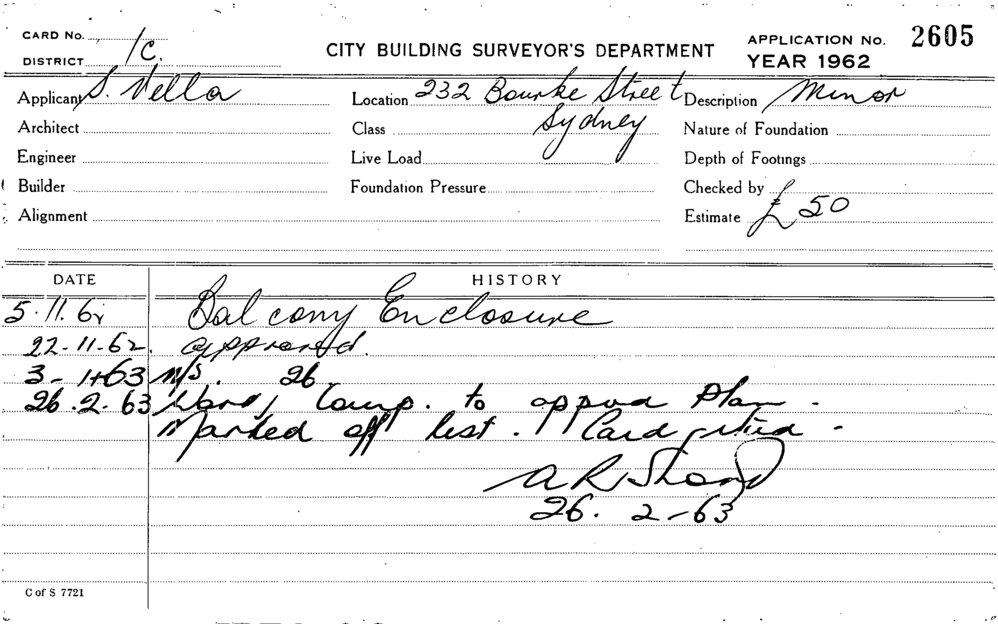 CARD No.
DISTRICT 1C.
CITY BUILDING SURVEYOR'S DEPARTMENT
APPLICATION No. 2605
YEAR 1962
Applicant S. Vella
Location 232 Bourke Street
Sydney
Description Minor
Architect
Class
Nature of Foundation
Engineer
Live Load
Depth of Footings
Builder
Foundation Pressure
Checked by
Alignment
Estimate £50
DATE HISTORY
5.11.62 Balcony Enclosure
22-11-62. approved.
3-1-63 N/S. 26
26.2.63 Work Comp. to appvd Plan.
Marked off list. Card -
A R Shand
26. 2-63
C of S 7721